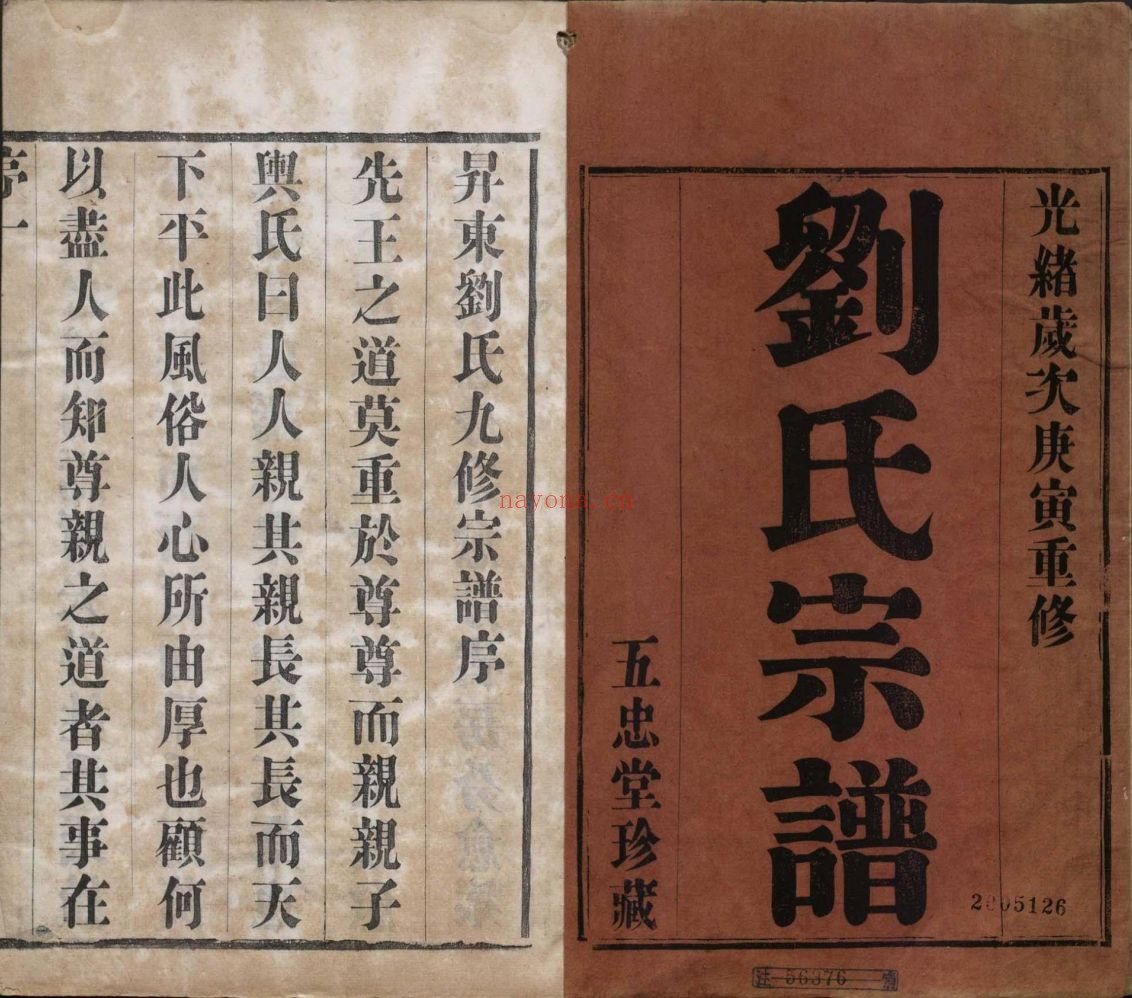 光緒歲次庚寅重修
劉氏宗譜
五忠堂珍藏
2005126
56376
昇東劉氏九修宗譜序
先王之道莫重於尊尊而親親子
輿氏曰人人親其親長其長而天
下平此風俗人心所由厚也顧何
以盡人而知尊親之道者其事在
序一
nayona.cn